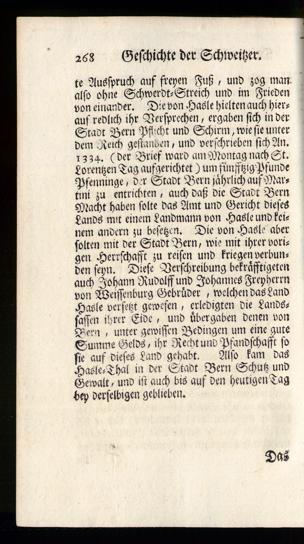 268 Geschichte der Schweitzer.
te Ausspruch auf freyen Fuß, und zog man
also ohne Schwerdt-Streich und im Frieden
von einander. Die von Hasle hielten auch hier-
auf redlich ihr Versprechen, ergaben sich in der
Stadt Bern Pflicht und Schirm, wie sie unter
dem Reich gestanden, und verschrieben sich An.
1334. (der Brief ward am Montag nach St.
Lorentzen Tag aufgerichtet) um fünfftzig Pfunde
Pfenninge, der Stadt Bern jährlich auf Mar-
tini zu entrichten, auch daß die Stadt Bern
Macht haben solte das Amt und Gericht dieses
Lands mit einem Landmann von Hasle und kei-
nem andern zu besetzen. Die von Hasle aber
solten mit der Stadt Bern, wie mit ihrer vori-
gen Herrschafft zu reisen und kriegen verbun-
den seyn. Diese Verschreibung bekräfftigeten
auch Johann Rudolff und Johannes Freyherrn
von Weissenburg Gebrüder, welchen das Land
Hasle versetzt gewesen, erledigten die Lands-
sassen ihrer Eide, und übergaben denen von
Bern, unter gewissen Bedingen um eine gute
Summe Gelds, ihr Recht und Pfandschafft so
sie auf dieses Land gehabt. Also kam das
Hasle-Thal in der Stadt Bern Schutz und
Gewalt, und ist auch bis auf den heutigen Tag
bey derselbigen geblieben.
Das